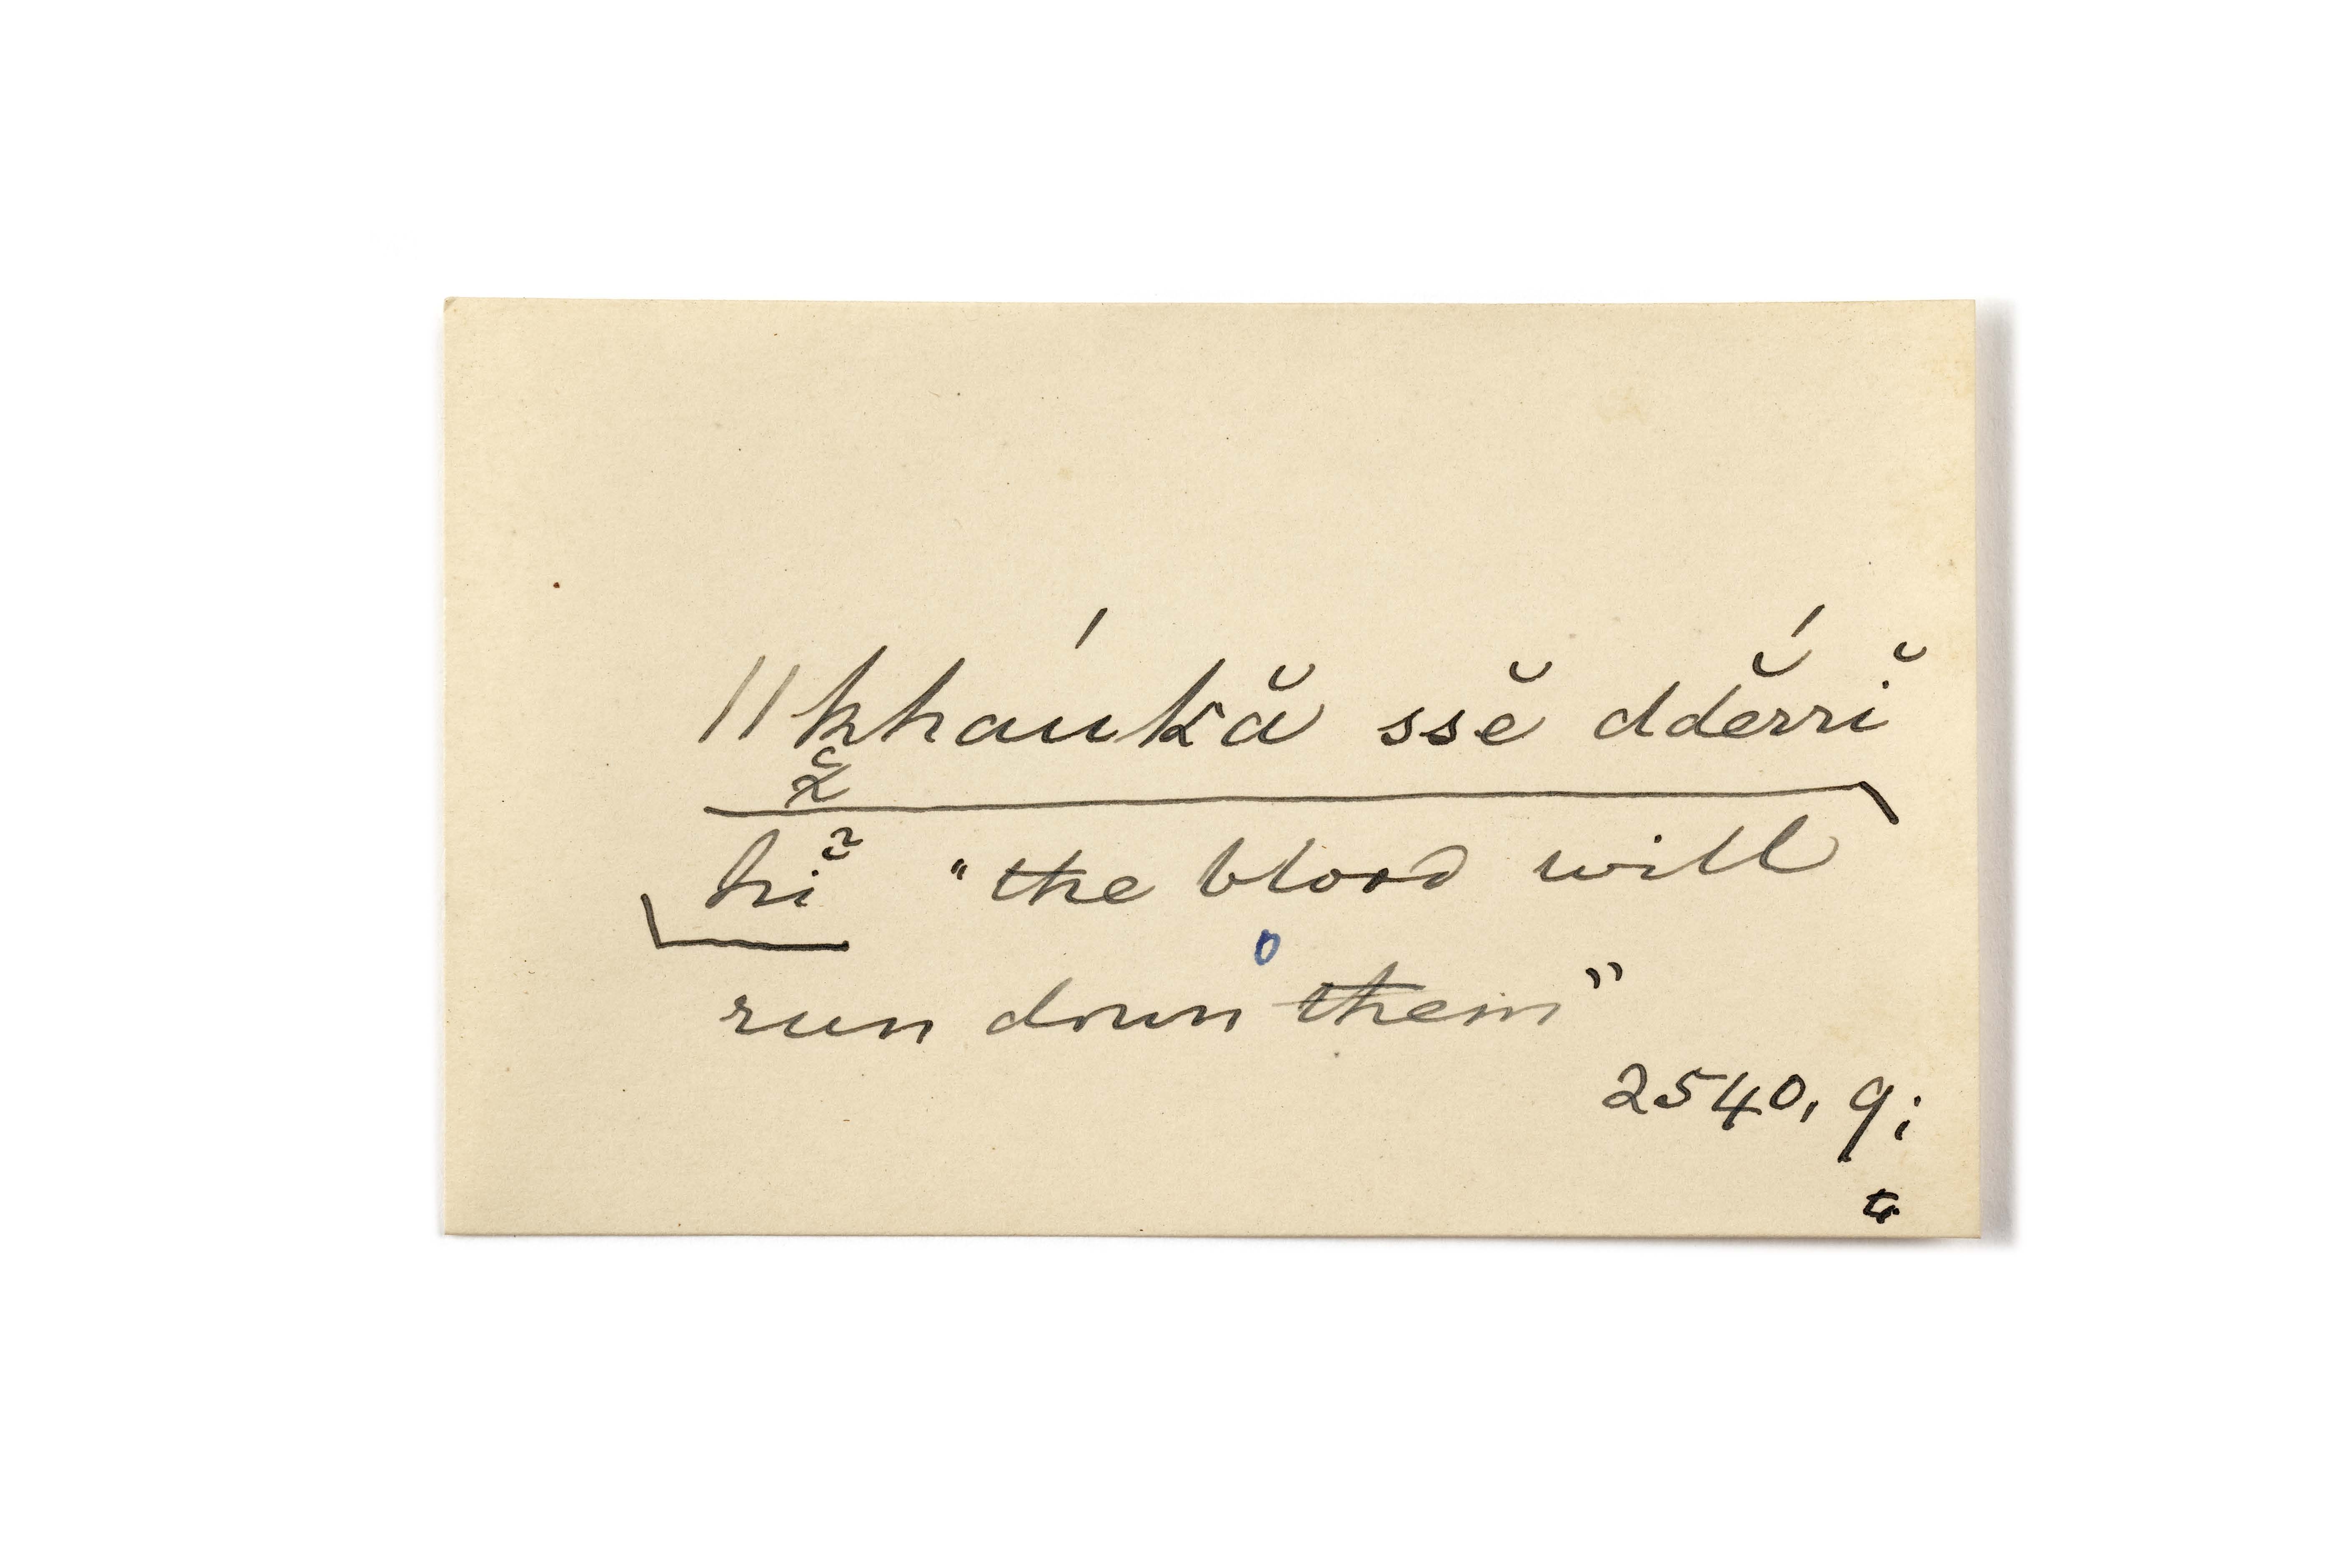 ǁkháukă ssĕ ddĕ́rrĭ
hĭ̃ "the blood will
run down them"
2540, 9;